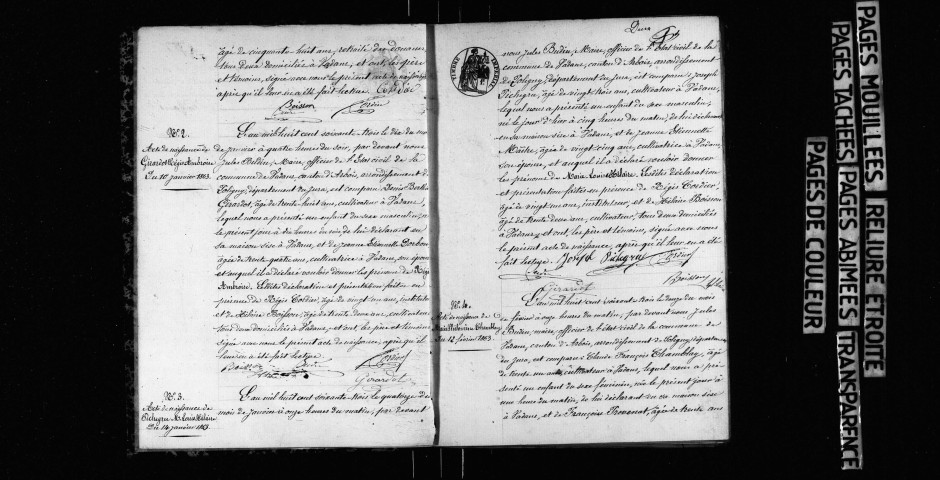 âgé de cinquante huit ans, retraité des douanes,
tous deux domiciliés à Vadans, et ont, les père
et témoins, signé avec nous le présent acte de naissance
après qu'il leur en a été fait lecture.
Boisson
Nº 2.
Acte de naissance de
Girardot Régis Ambroise
Du 10 janvier 1863.
L'an mil huit cent soixante trois le dix du mois
de janvier à quatre heures du soir, par devant nous
Jules Maire, officier de l'état civil de la
commune de Vadans, canton d'Arbois, arrondissement de
Poligny, département du Jura, est comparu Denis
Girardot, âgé de trente huit ans, cultivateur à Vadans,
lequel nous a présenté un enfant du sexe masculin, né
le présent jour à dix heures du matin de lui déclarant en
sa maison sise à Vadans, et de Jeanne Etiennette
âgée de trente quatre ans, cultivatrice à Vadans, son épouse
et auquel il a déclaré vouloir donner les prénoms de Régis
Ambroise. Lesdites déclaration et présentation faites en
présence de Régis Cordier, âgé de vingt un ans, instituteur
et de Hilaire Boisson, âgé de trente deux ans, cultivateur
tous deux domiciliés à Vadans, et ont, les père et témoins
signé avec nous le présent acte de naissance, après qu'il
leur en a été fait lecture
Cordier
Girardot
Nº 3.
Acte de naissance de
Pichegru M. Louis Hilaire
Du 14 janvier 1863.
L'an mil huit cent soixante trois le quatorze du
mois de janvier à onze heures du matin, par devant
Deux
TIMBRE IMPERIAL
nous Jules Maire, officier de l'état civil de la
commune de Vadans, canton d'Arbois, arrondissement
de Poligny, département du Jura, est comparu Joseph
Pichegru, âgé de vingt trois ans, cultivateur à Vadans,
lequel nous a présenté un enfant du sexe masculin,
né le jour d'hier à cinq heures du matin, de lui déclarant
en sa maison sise à Vadans, et de Jeanne Etiennette
âgée de vingt cinq ans, cultivatrice à Vadans,
son épouse, et auquel il a déclaré vouloir donner
les prénoms de Marie Louis Hilaire. Lesdites déclaration
et présentation faites en présence de Régis Cordier,
âgé de vingt un ans, instituteur, et de Hilaire Boisson
âgé de trente deux ans, cultivateur, tous deux domiciliés
à Vadans, et ont, les père et témoins, signé avec nous
le présent acte de naissance, après qu'il leur en a été
fait lecture. Joseph Pichegru Cordier
Girardot Boisson
Nº 4.
Acte de naissance de
Chamblay
Du 12 février 1863.
L'an mil huit cent soixante trois le douze du mois
de février à onze heures du matin, par devant nous Jules
maire, officier de l'état civil de la commune de
Vadans, canton d'Arbois, arrondissement de Poligny, département
du Jura, est comparu Claude François Chamblay, âgé
de trente un ans, cultivateur à Vadans, lequel nous a pré
senté un enfant du sexe féminin, née le présent jour à
une heure du matin, de lui déclarant en sa maison sise
à Vadans, et de Françoise âgée de trente ans
PAGES MOUILLEES
PAGES TACHEES
PAGES DE COULEUR
RELIURE ETROITE
PAGES ABIMEES
TRANSPARENCE